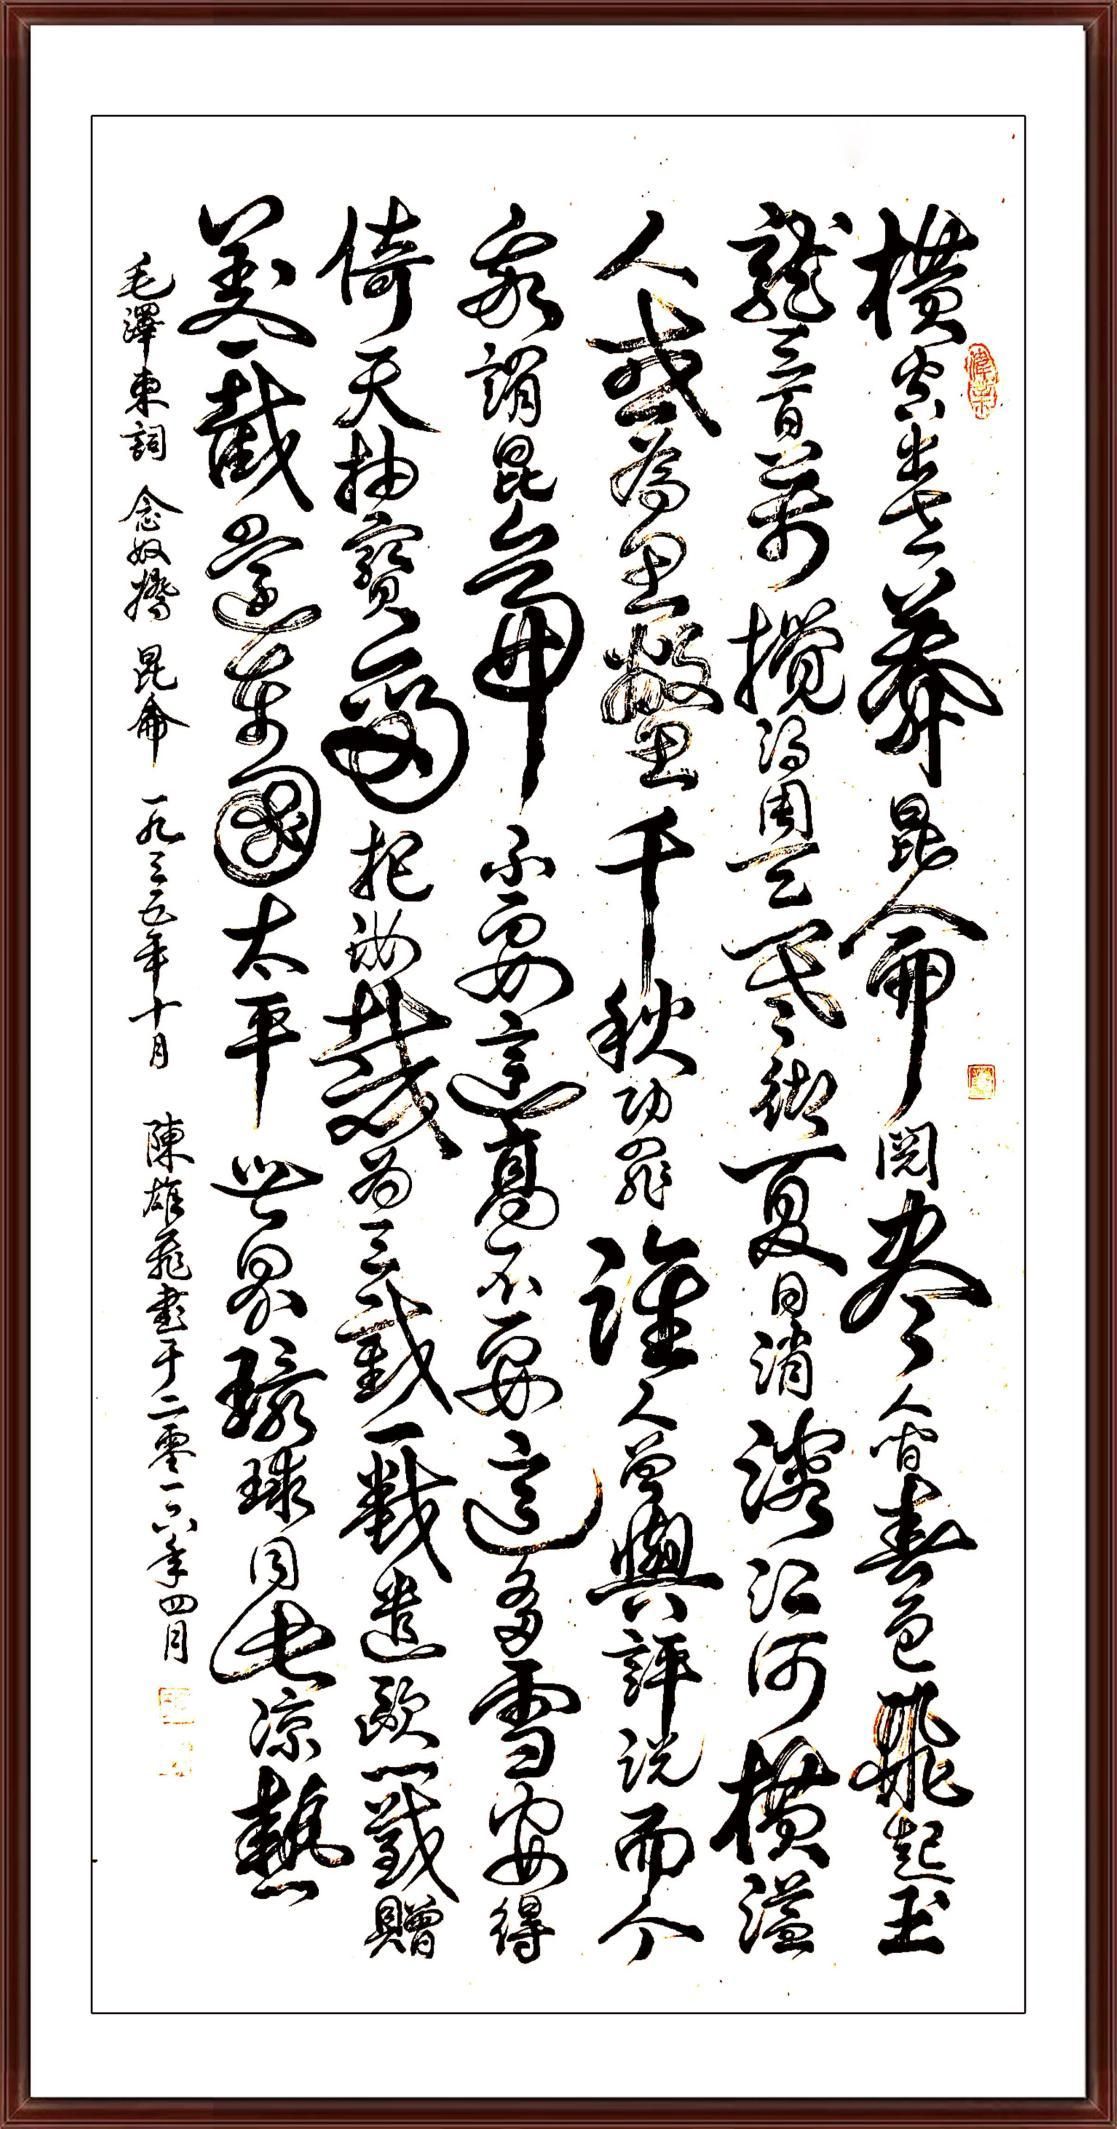 橫空出世莽昆侖閱盡人間春色飛起玉
龍三百萬攪得周天寒徹夏日消溶江河橫溢
人或為魚鱉千秋功罪誰人曾與評說而今
我謂昆侖不要這高不要這多雪安得
倚天抽寶劍把汝裁為三截一截遺歐一截贈
美一截還東國太平世界環球同此涼熱
毛澤東詞 念奴嬌 昆侖 一九三五年十月 陳雄飛書于二零一六年四月